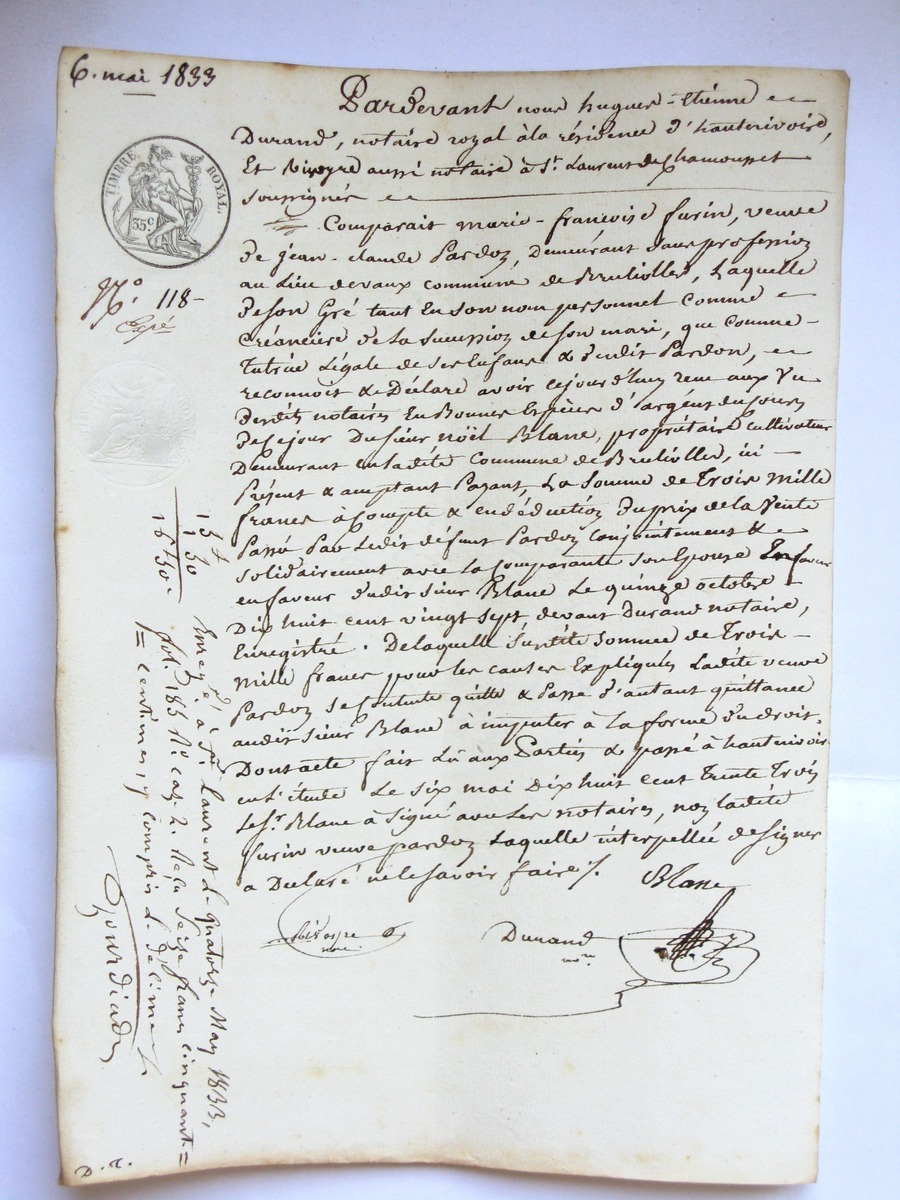 6. mai 1833
Pardevant nous hugues-Etienne
Durand, notaire royal à la résidence d'hauterivoire,
Et aussi notaire à St. Laurent de Chamousset
soussignés
Comparait marie-francoise furin, veuve
de jean-claude Pardon, Demeurant sans profession
au Lieu de vaux commune de Brulioller, Laquelle
de son Gré tant En son nom personnel comme
créancière de la succession de son mari, que comme
tutrice Légale de ses Enfans & dudit Pardon,
reconnoit & Déclare avoir cejourd'huy recu aux Vu
desdits notaires En Bonnes Espèces d'argent du Cours
de ce jour Du sieur noël Blanc, propriétaire cultivateur
Demeurant en ladite Commune de Brulioller, ici
Présent & acceptant Payant, La Somme de Trois Mille
francs à Compte & en déduction du prix de la Vente
Passé Par Ledit défunt Pardon Conjointement &
solidairement avec la Comparante son Epouse En faveur
en faveur dudit sieur Blanc Le quinze octobre
Dix huit cent vingt sept, devant Durand notaire,
Enregistré. De laquelle susdite Somme de Trois
Mille francs pour les causes Expliquées Ladite veuve
Pardon se contente quitte & Passe d'autant quittance
audit sieur Blanc à imputer à La forme du droit.
Dont acte fait Lu aux Parties & passé à hauterivoire
en L'étude Le six mai Dix huit cent trente Trois
Le Sr. Blanc a Signé avec Les notaires, non ladite
furin veuve pardon Laquelle interpellée de signer
a Déclaré ne le savoir faire /.
Blanc
Durand
nore
TIMBRE ROYAL.
35c
No. 118-
Expé
15 f
1 50
16 f 50 c
Enregé à St. Laurent le quatorze May 1833,
fol. 185 Ro. cas. 2. Reçu Seize francs cinquante =
= centimes, y compris le décime
Gourdiade
D. T.